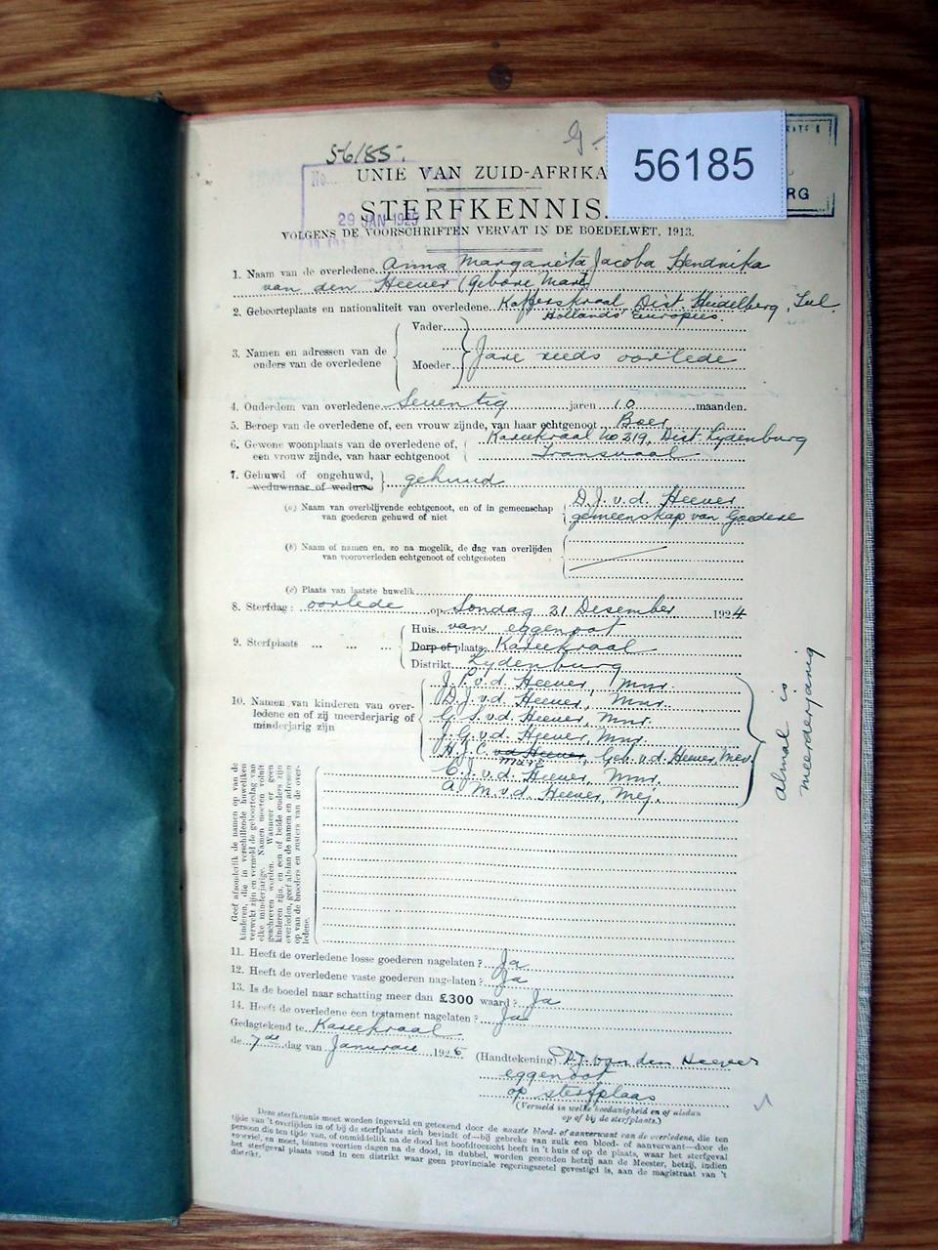 56185.
G.
56185
RG
No.
UNIE VAN ZUID-AFRIKA
STERFKENNIS
29 JAN 1925
VOLGENS DE VOORSCHRIFTEN VERVAT IN DE BOEDELWET, 1913.
1. Naam van de overledene Anna Margarita Jacoba Hendrika
van den Heever (Gebore Maré)
2. Geboorteplaats en nationaliteit van overledene Kafferskraal Dist. Heidelberg,
Hollands Europees.
3. Namen en adressen van de onders van de overledene
Vader
Moeder
Jare reeds oorlede
4. Ouderdom van overledene Seventig jaren 10 maanden.
5. Beroep van de overledene of, een vrouw zijnde, van haar echtgenoot Boer
6. Gewone woonplaats van de overledene of, een vrouw zijnde, van haar echtgenoot
Kareekraal No 219, Dist. Lydenburg
Transvaal
7. Gehuwd of ongehuwd, weduwnaar of weduwe
gehuud
(a) Naam van overblijvende echtgenoot, en of in gemeenschap van goederen gehuwd of niet
D.J. v.d. Heever
gemeenskap van Goedere
(b) Naam of namen en, zo na mogelik, de dag van overlijden van vooroverleden echtgenoot of echtgenoten
(c) Plaats van laatste huwelik
8. Sterfdag: oorlede op Sondag 21 Desember 1924
9. Sterfplaats ... ... ...
Huis van eggenoot
Dorp of plaats Kareekraal
Distrikt Lydenburg
10. Namen van kinderen van overledene en of zij meerderjarig of minderjarig zijn
J. P. v.d. Heever, Mnr.
D. J. v.d. Heever, Mnr.
G. S. v.d. Heever, Mnr.
J. G. v.d. Heever, Mnr.
H. J. C. v.d. Heever, Geb. v.d. Heever, Mev.
Maré
C. J. v.d. Heever, Mnr.
A. M. v.d. Heever, Mej.
Almal is
meerderjarig
Geef afsonderlik de namen op van de
kinderen, die in verschillende huweliken
verwekt zijn en vermeld de geboortedag van
elke minderjarige. Namen moeten voluit
geschreven worden. Wanneer er geen
kinderen zijn, en een of beide ouders zijn
overleden, geef alsdan de namen en adressen
op van de broeders en zusters van de over-
ledene.
11. Heeft de overledene losse goederen nagelaten ? Ja
12. Heeft de overledene vaste goederen nagelaten ? Ja
13. Is de boedel naar schatting meer dan £300 waard ? Ja
14. Heeft de overledene een testament nagelaten ? Ja
Gedagtekend te Kareekraal
de 7de dag van Januarie 1925
(Handtekening) D.J. van den Heever
eggenoot
op sterfplaas
(Vermeld in welke hoedanigheid en of alsdan
op of bij de sterfplaats.)
Deze sterfkennis moet worden ingevuld en getekend door de naaste bloed- of aanverwant van de overledene, die ten
tijde van 't overlijden in of bij de sterfplaats zich bevindt of—bij gebreke van zulk een bloed- of aanverwant—door de
persoon die ten tijde van, of onmiddelik na de dood het hoofdtoezicht heeft in 't huis of op de plaats, waar het sterfgeval
voorviel, en moet, binnen veertien dagen na de dood, in dubbel, worden gezonden hetzij aan de Meester, hetzij, indien
het sterfgeval plaats vond in een distrikt waar geen provinciale regeringszetel gevestigd is, aan de magistraat van 't
distrikt.